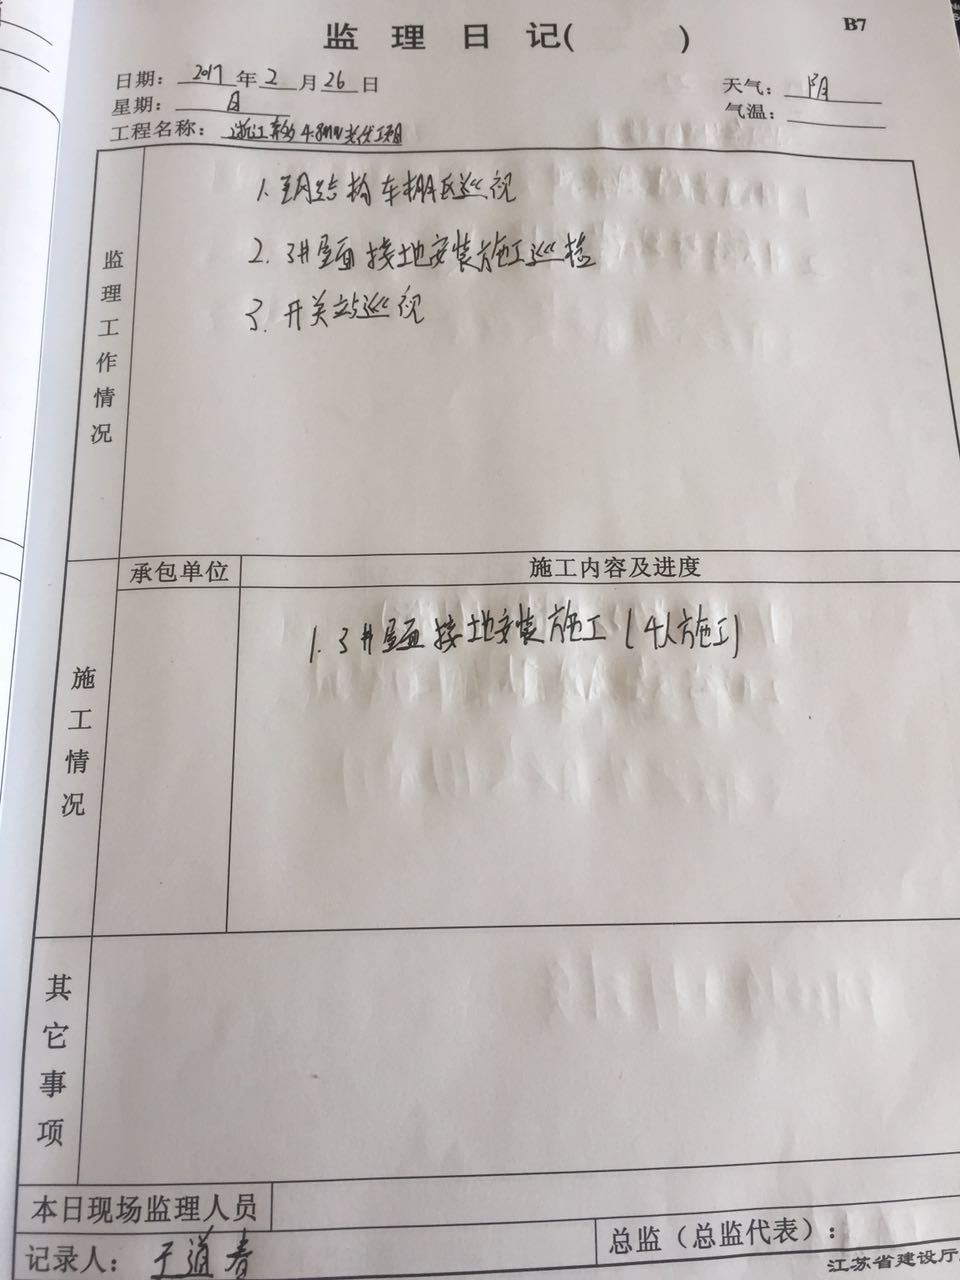 监 理 日 记( )
B7
日期: 2017 年 2 月 26 日
天气: 阴
星期: 日
气温:
工程名称: 浙江 4.8MW光伏项目
监理工作情况
1. 结构车棚区巡视
2. 3#屋面接地安装施工巡检
3. 开关站巡视
施工情况
承包单位
施工内容及进度
1. 3#屋面接地安装施工(4人施工)
其它事项
本日现场监理人员
记录人: 于道春
总监(总监代表):
江苏省建设厅